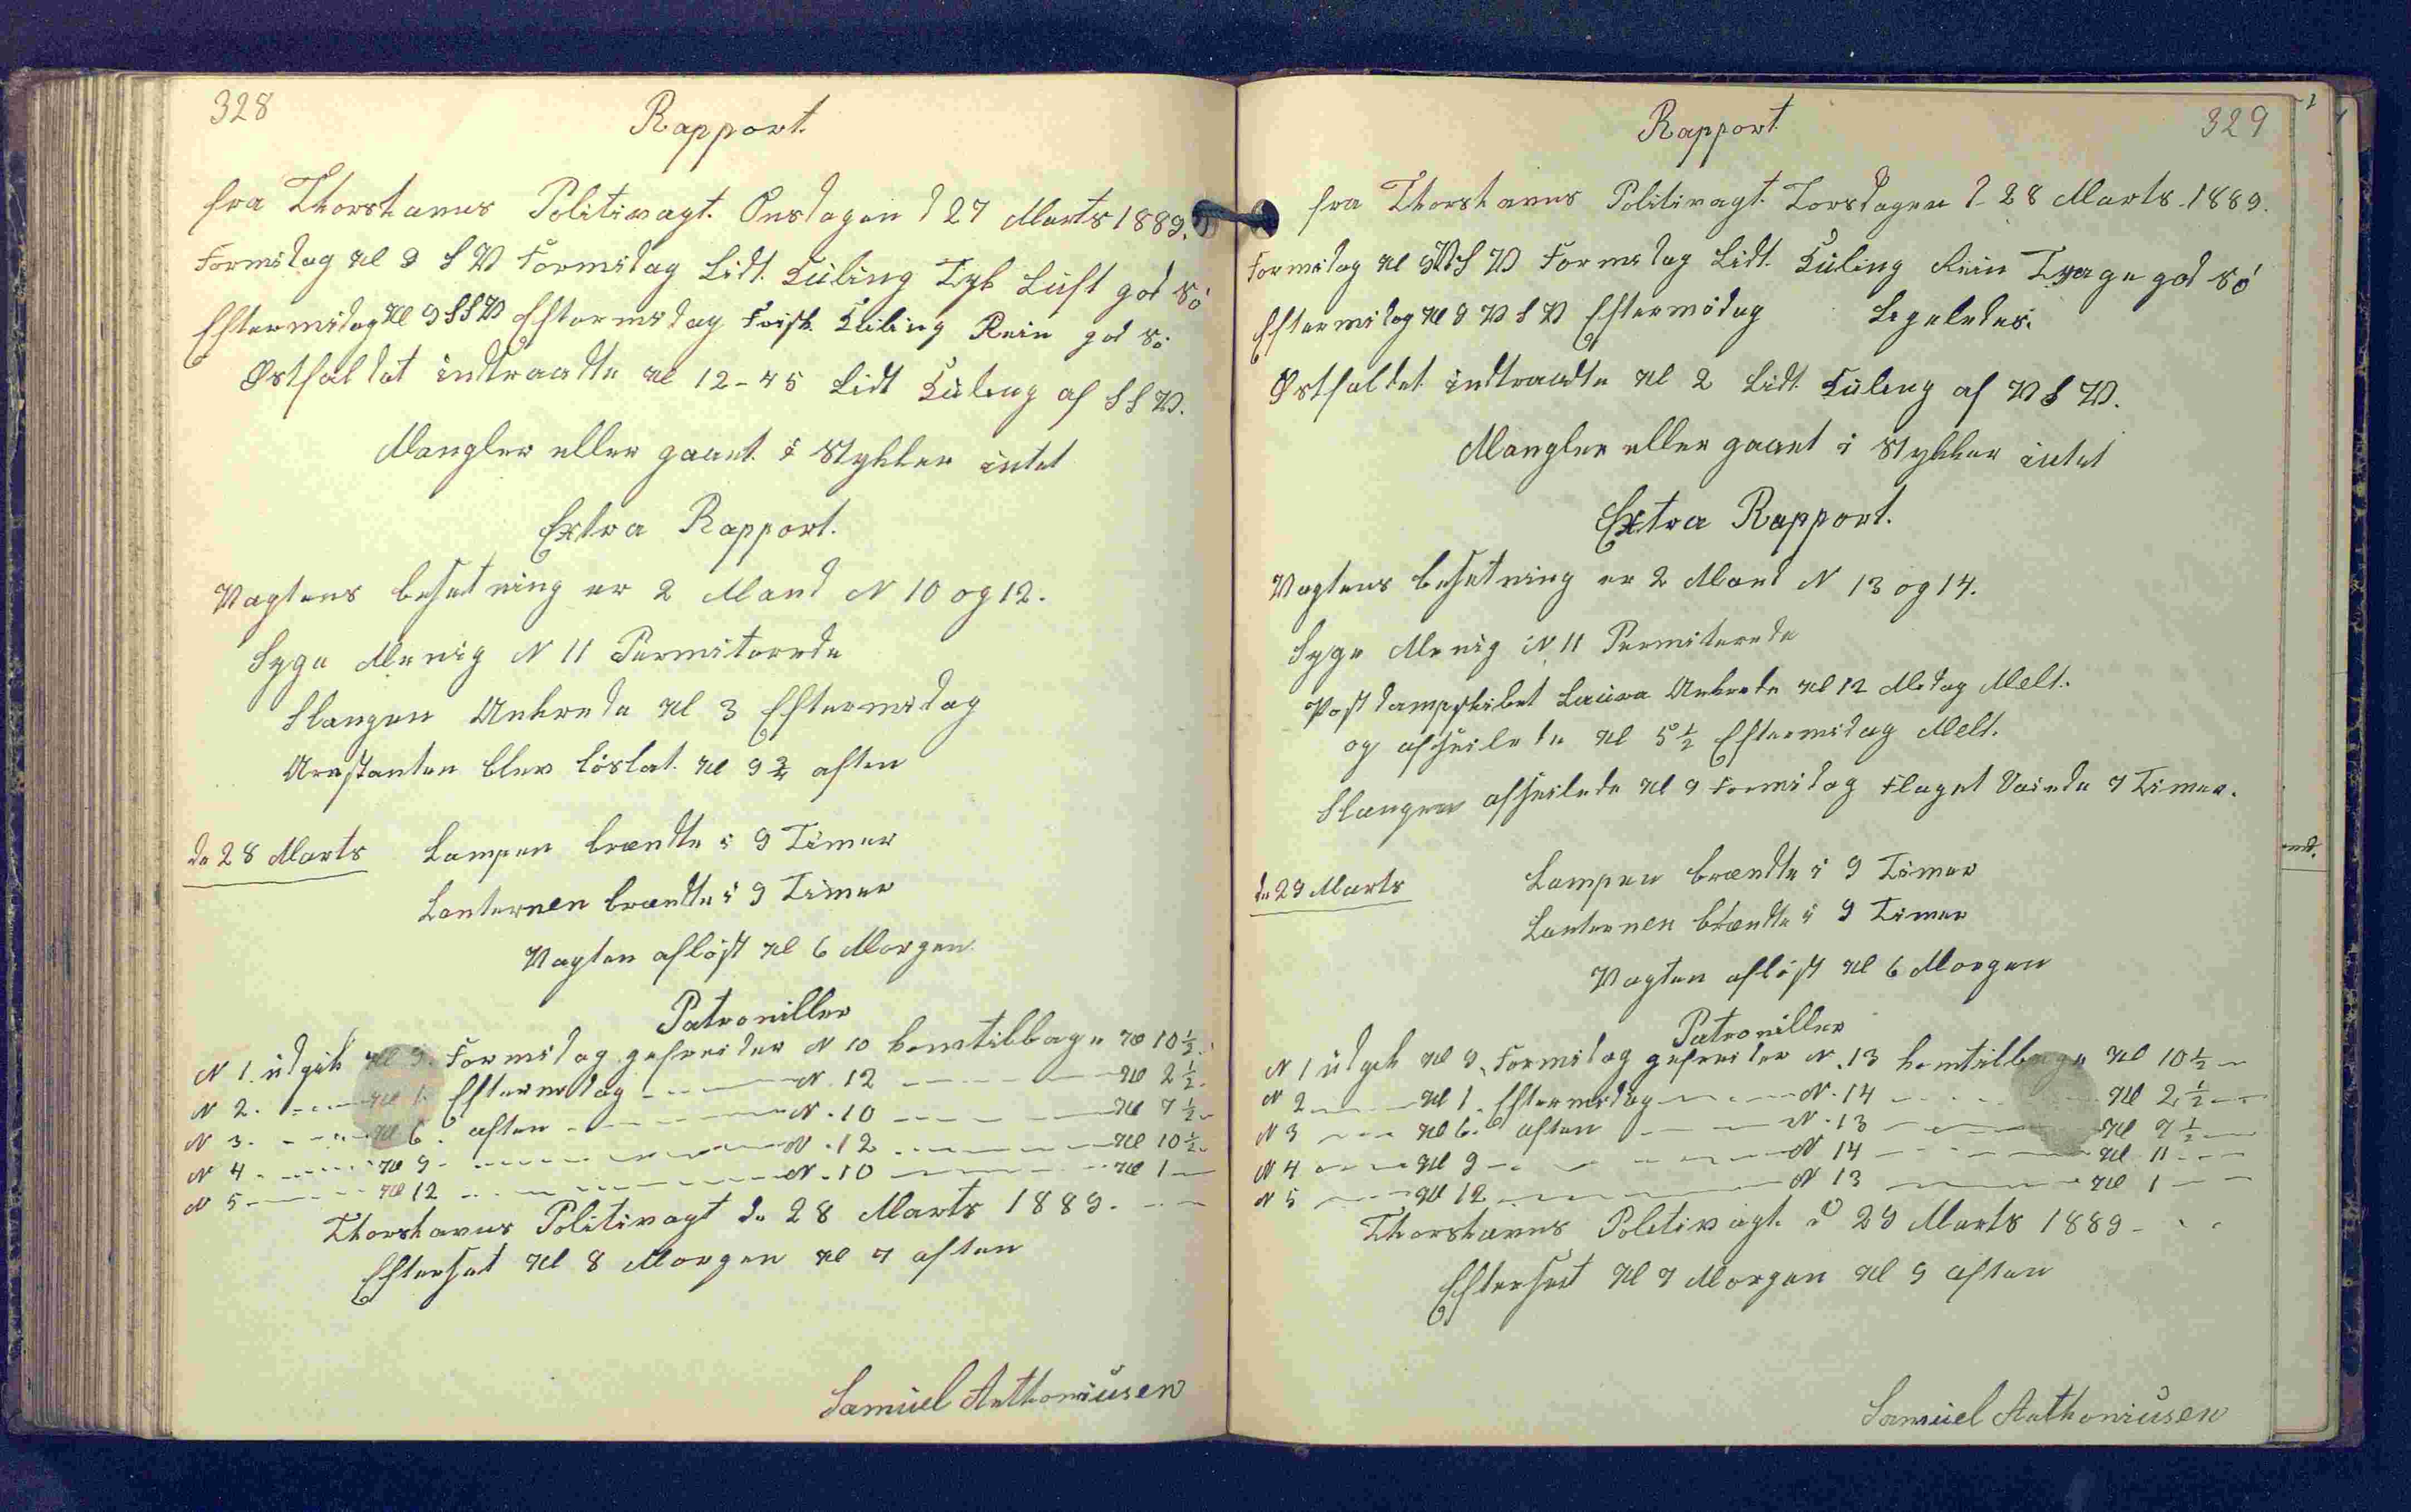 328
Rapport.
fra Thorshavns Politivagt. Onsdagen d 27 Marts 1889.
Formidag Kl 9 S W Formidag Lidt Kuling Tyk Luft god Sö
Eftermidag Kl 9 SSW Eftermidag Frisk Kuling Rein god Sö
Østfaldet indtraadte Kl 12-45 Lidt Kuling af SSW.
Mangler eller gaaet i Stykker intet
Extra Rapport.
Vagtens besetning er 2 Mand N 10 og 12.
Syge Menig N 11 Permiterede
Slangen Ankrede Kl 3 Eftermidag
Arrestanten blev löslat Kl 9 3/4 aften
de 28 Marts Lampen brændte i 9 Timer
Lanternen brændte i 9 Timer
Vagten aflöst Kl 6 Morgen
Patroniller
N 1. udgik Kl 9. Formidag gefreider N 10 komtilbage Kl 10 1/2.
N 2. Kl 1. Eftermidag N. 12 Kl 2 1/2.
N 3. Kl 6. aften N. 10 Kl 7 1/2
N 4. Kl 9 N. 12 Kl 10 1/2
N 5 Kl 12 N. 10 Kl 1
Thorshavns Politivagt de 28 Marts 1889.
Efterset Kl 8 Morgen Kl 7 aften
Samuel Anthoniusen
329
Rapport
fra Thorshavns Politivagt. Torsdagen d 28 Marts 1889.
Formidag Kl 9 W S W Formidag Lidt Kuling Rein god Sö
Eftermidag Kl 8 W S W Eftermidag Ligeledes.
Østfaldet indtraadte Kl 2 Lidt Kuling af W S W.
Mangler eller gaaet i Stykker intet
Extra Rapport.
Vagtens besetning er 2 Mand N 13 og 14.
Syge Menig N 11 Permiterede
Postdampskibet Laura Ankrede Kl 12 Midag Melt.
og afseilede Kl 5 1/2 Eftermidag Melt.
Slangen afseilede Kl 9 Formidag Flaget Vaiede 7 Timer.
de 29 Marts Lampen brændte i 9 Timer
Lanternen brændte i 9 Timer
Vagten aflöst Kl 6 Morgen
Patroniller
N 1 udgik Kl 9. Formidag gefreider N. 13 komtilbage Kl 10 1/2
N 2 Kl 1. Eftermidag N. 14 Kl 2 1/2
N 3 Kl 6. aften N. 13 Kl 7 1/2
N 4 Kl 9 N 14 Kl 11
N 5 Kl 12 N 13 Kl 1
Thorshavns Politivagt. d 29 Marts 1889
Efterset Kl 7 Morgen Kl 9 aften
Samuel Anthoniusen